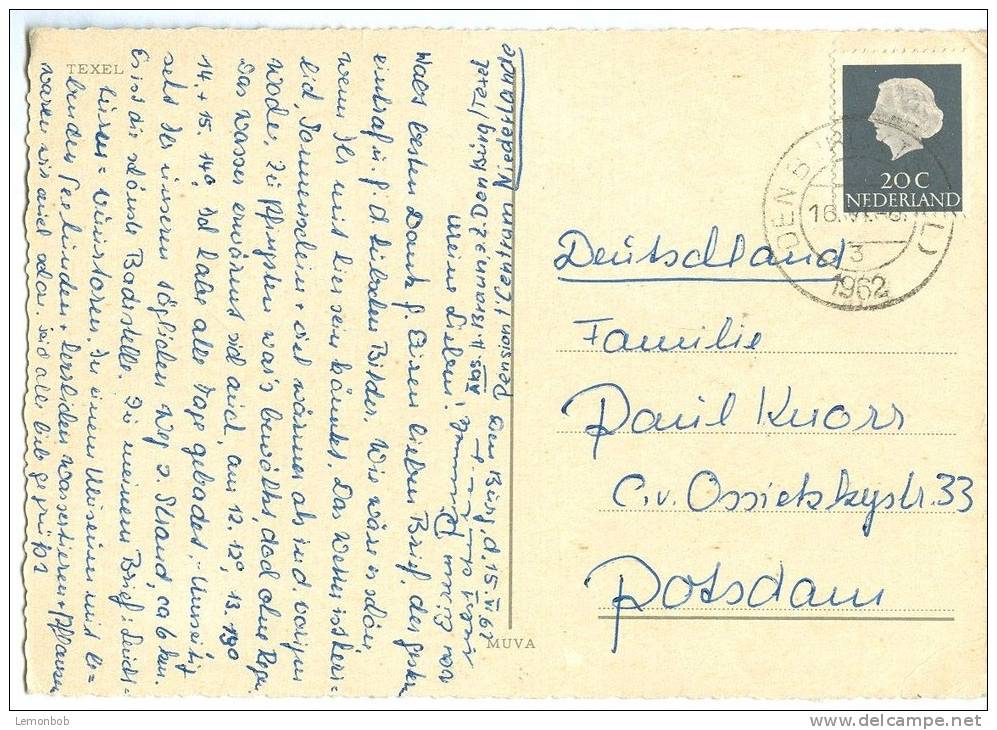 TEXEL
Pension t Centrum Niederlande
Abs. H. Braun z.Z. Den Burg / Texel
Den Burg, d. 15.VI.62
Meine Lieben!
Habt besten Dank f. Euren lieben Brief, der gestern
eintraf u. f. d. hübschen Bilder. Wie wäre es schön,
wenn Ihr mit hier sein könntet. Das Wetter ist herr=
lich, Sonnenschein + viel wärmer als in d. vorigen
Woche. Zu Pfingsten war's bewölkt, doch ohne Regen.
Das Wasser erwärmt sich auch, am 12. 12°, 13. 13°
14. + 15. 14°. Ich habe alle Tage gebadet. Umseitig
seht Ihr unseren täglichen Weg z. Strand, ca 6 km.
Es ist die schönste Badestelle. Zu meinem Brief:
waren wir auch schon. seid alle lieb gegrüßt
von Eurem
MUVA
20 C
NEDERLAND
DEN BURG (TEXEL)
3
1962
Deutschland
Familie
Paul Knorr
C. v. Ossietzkystr. 33
Potsdam
Lemonbob
delcampe.net